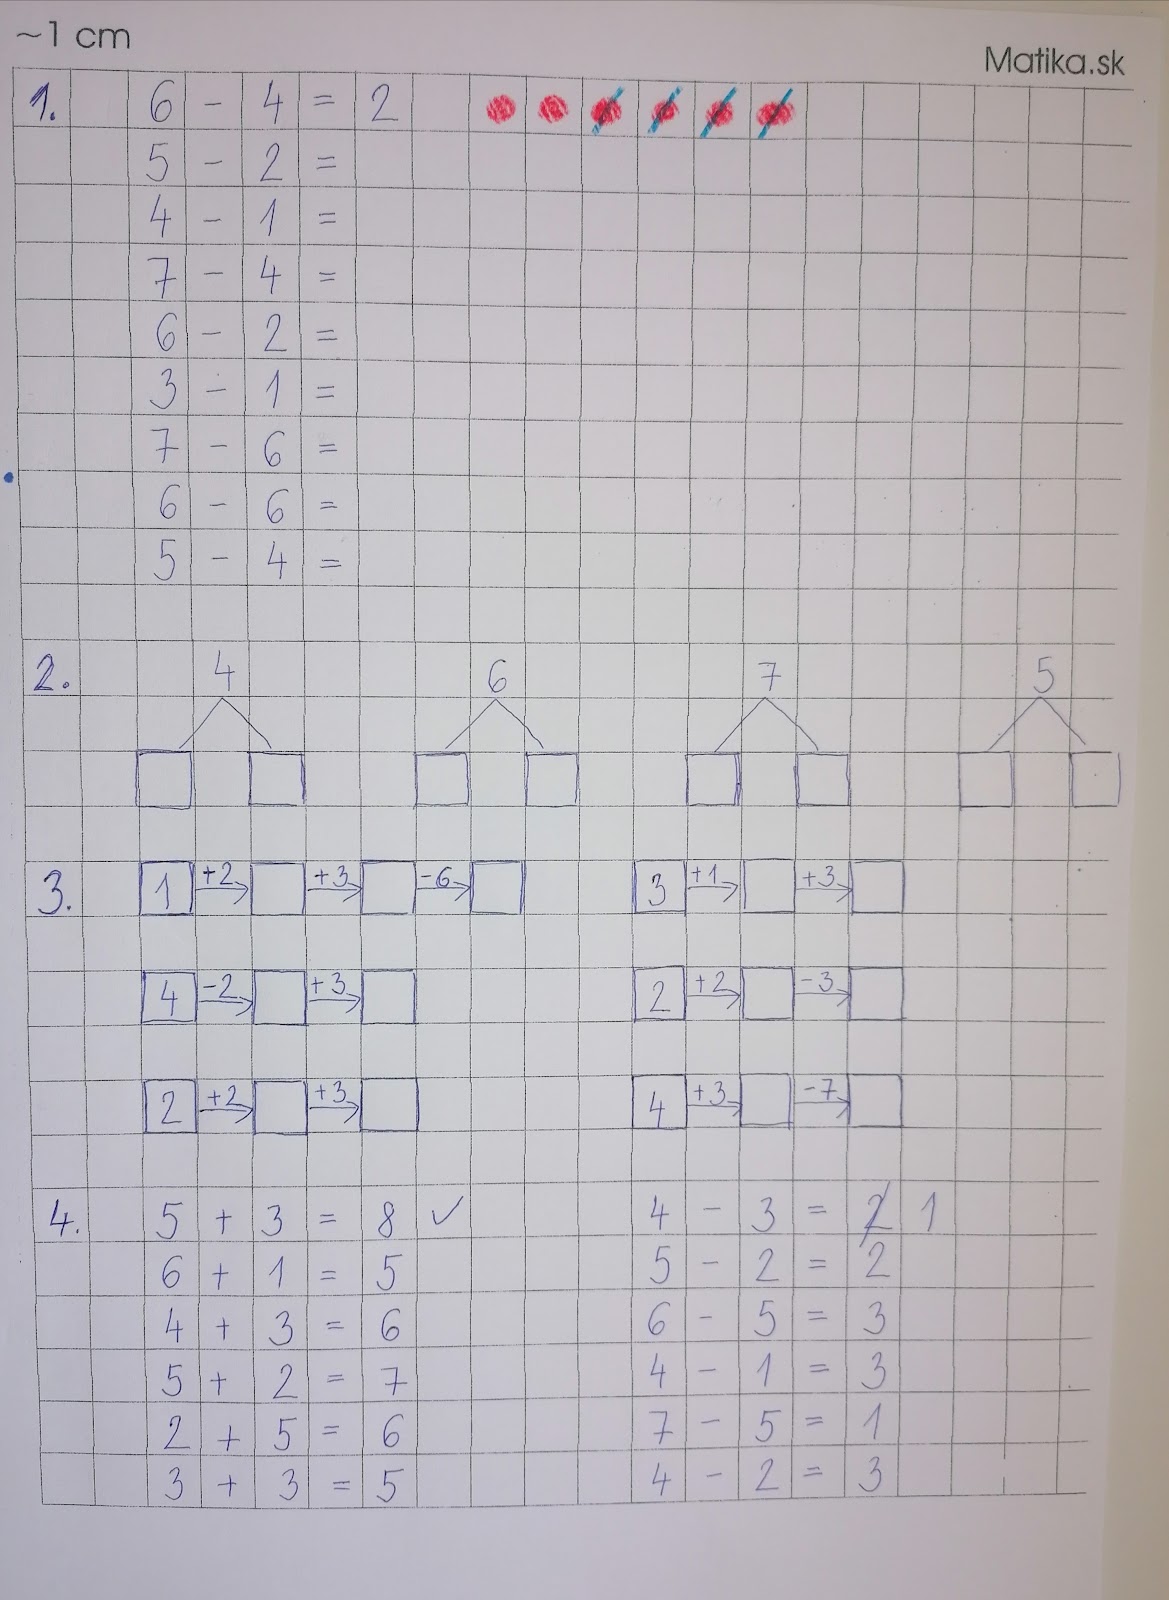 ~1 cm
Matika.sk
1. 6 - 4 = 2
5 - 2 =
4 - 1 =
7 - 4 =
6 - 2 =
3 - 1 =
7 - 6 =
6 - 6 =
5 - 4 =
2. 4 6 7 5
3. 1 +2 +3 -6 3 +1 +3
4 -2 +3 2 +2 -3
2 +2 +3 4 +3 -7
4. 5 + 3 = 8 ✓ 4 - 3 = 2 1
6 + 1 = 5 5 - 2 = 2
4 + 3 = 6 6 - 5 = 3
5 + 2 = 7 4 - 1 = 3
2 + 5 = 6 7 - 5 = 1
3 + 3 = 5 4 - 2 = 3